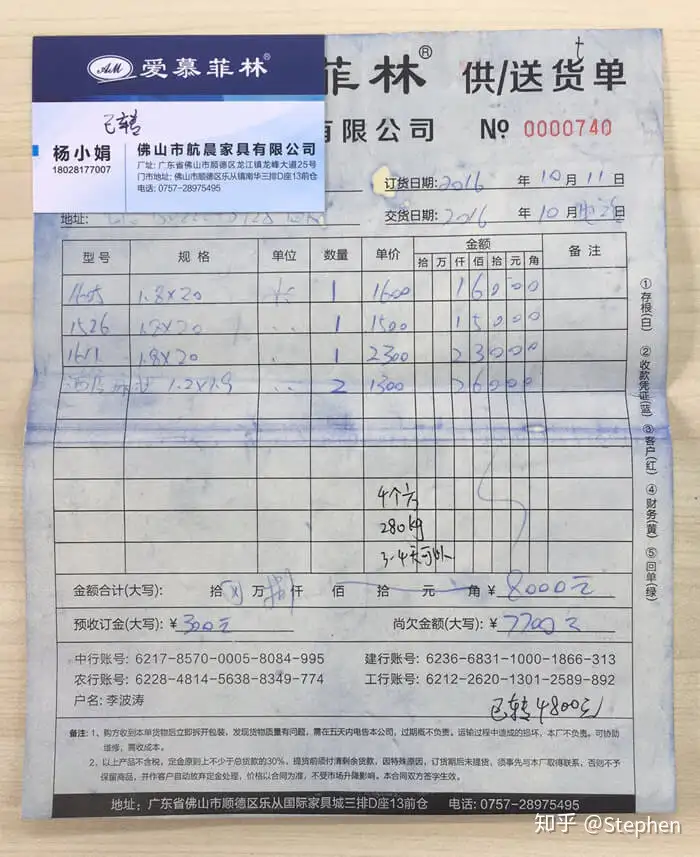 AM 爱慕菲林®
已转
杨小娟
18028177007
佛山市航晨家具有限公司
厂址: 广东省佛山市顺德区龙江镇龙峰大道25号
门市地址: 佛山市顺德区乐从镇南华三排D座13前仓
电话: 0757-28975495
菲林® 供/送货单
有限公司 № 0000740
订货日期: 2016 年 10 月 11 日
地址: 交货日期: 2016 年 10 月 日
型号 规格 单位 数量 单价 金额 备注
拾 万 仟 佰 拾 元 角
1.8×20 1 1600 1 6 0 0 0 0
1526 1 1500 1 5 0 0 0
1611 1.8×20 1 2300 2 3 0 0 0
1.2×1.9 2 1300 2 6 0 0 0
4个六
280kg
3-4天可以
金额合计(大写): 拾 万 捌 仟 佰 拾 元 角 ¥ 8000元
预收订金(大写): ¥ 300元 尚欠金额(大写): ¥ 7700元
中行账号: 6217-8570-0005-8084-995 建行账号: 6236-6831-1000-1866-313
农行账号: 6228-4814-5638-8349-774 工行账号: 6212-2620-1301-2589-892
户名: 李波涛
已转4800元
备注: 1、购方收到本单货物后立即拆开包装, 发现货物质量有问题, 需在五天内电告本公司, 过期概不负责。运输过程中造成的损坏, 本厂不负责。可协助
维修, 需收成本。
2、以上产品不含税, 定金原则上不少于总货款的30%, 提货前须付清剩余货款, 因特殊原因, 订货期后未提货, 须事先与本厂取得联系, 否则不予
保留商品, 并作客户自动放弃定金处理, 价格以合同为准, 不受市场升降影响。本合同双方签字生效。
地址: 广东省佛山市顺德区乐从国际家具城三排D座13前仓 电话: 0757-28975495
①存根(白) ②收款凭证(蓝) ③客户(红) ④财务(黄) ⑤回单(绿)
知乎 @Stephen